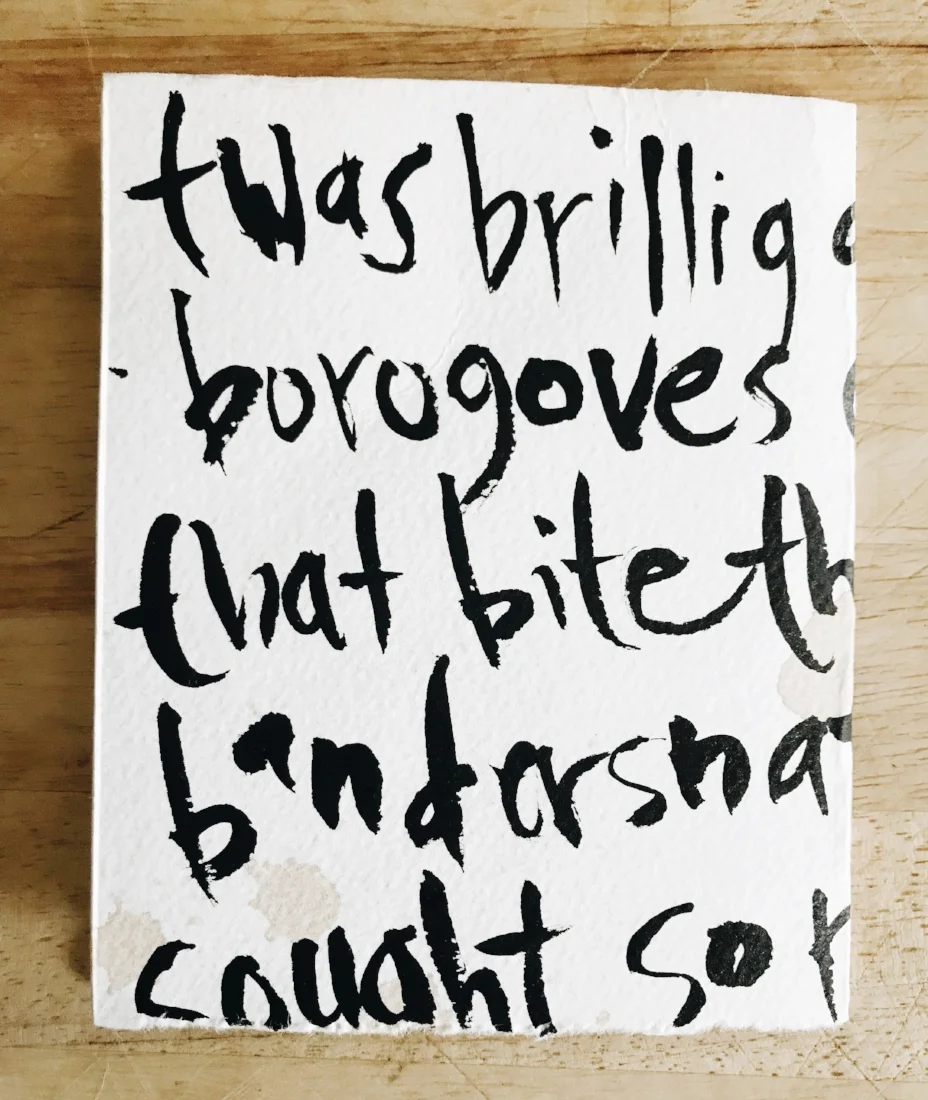 twas brillig
borogoves
that bite th
bandersna
sought so